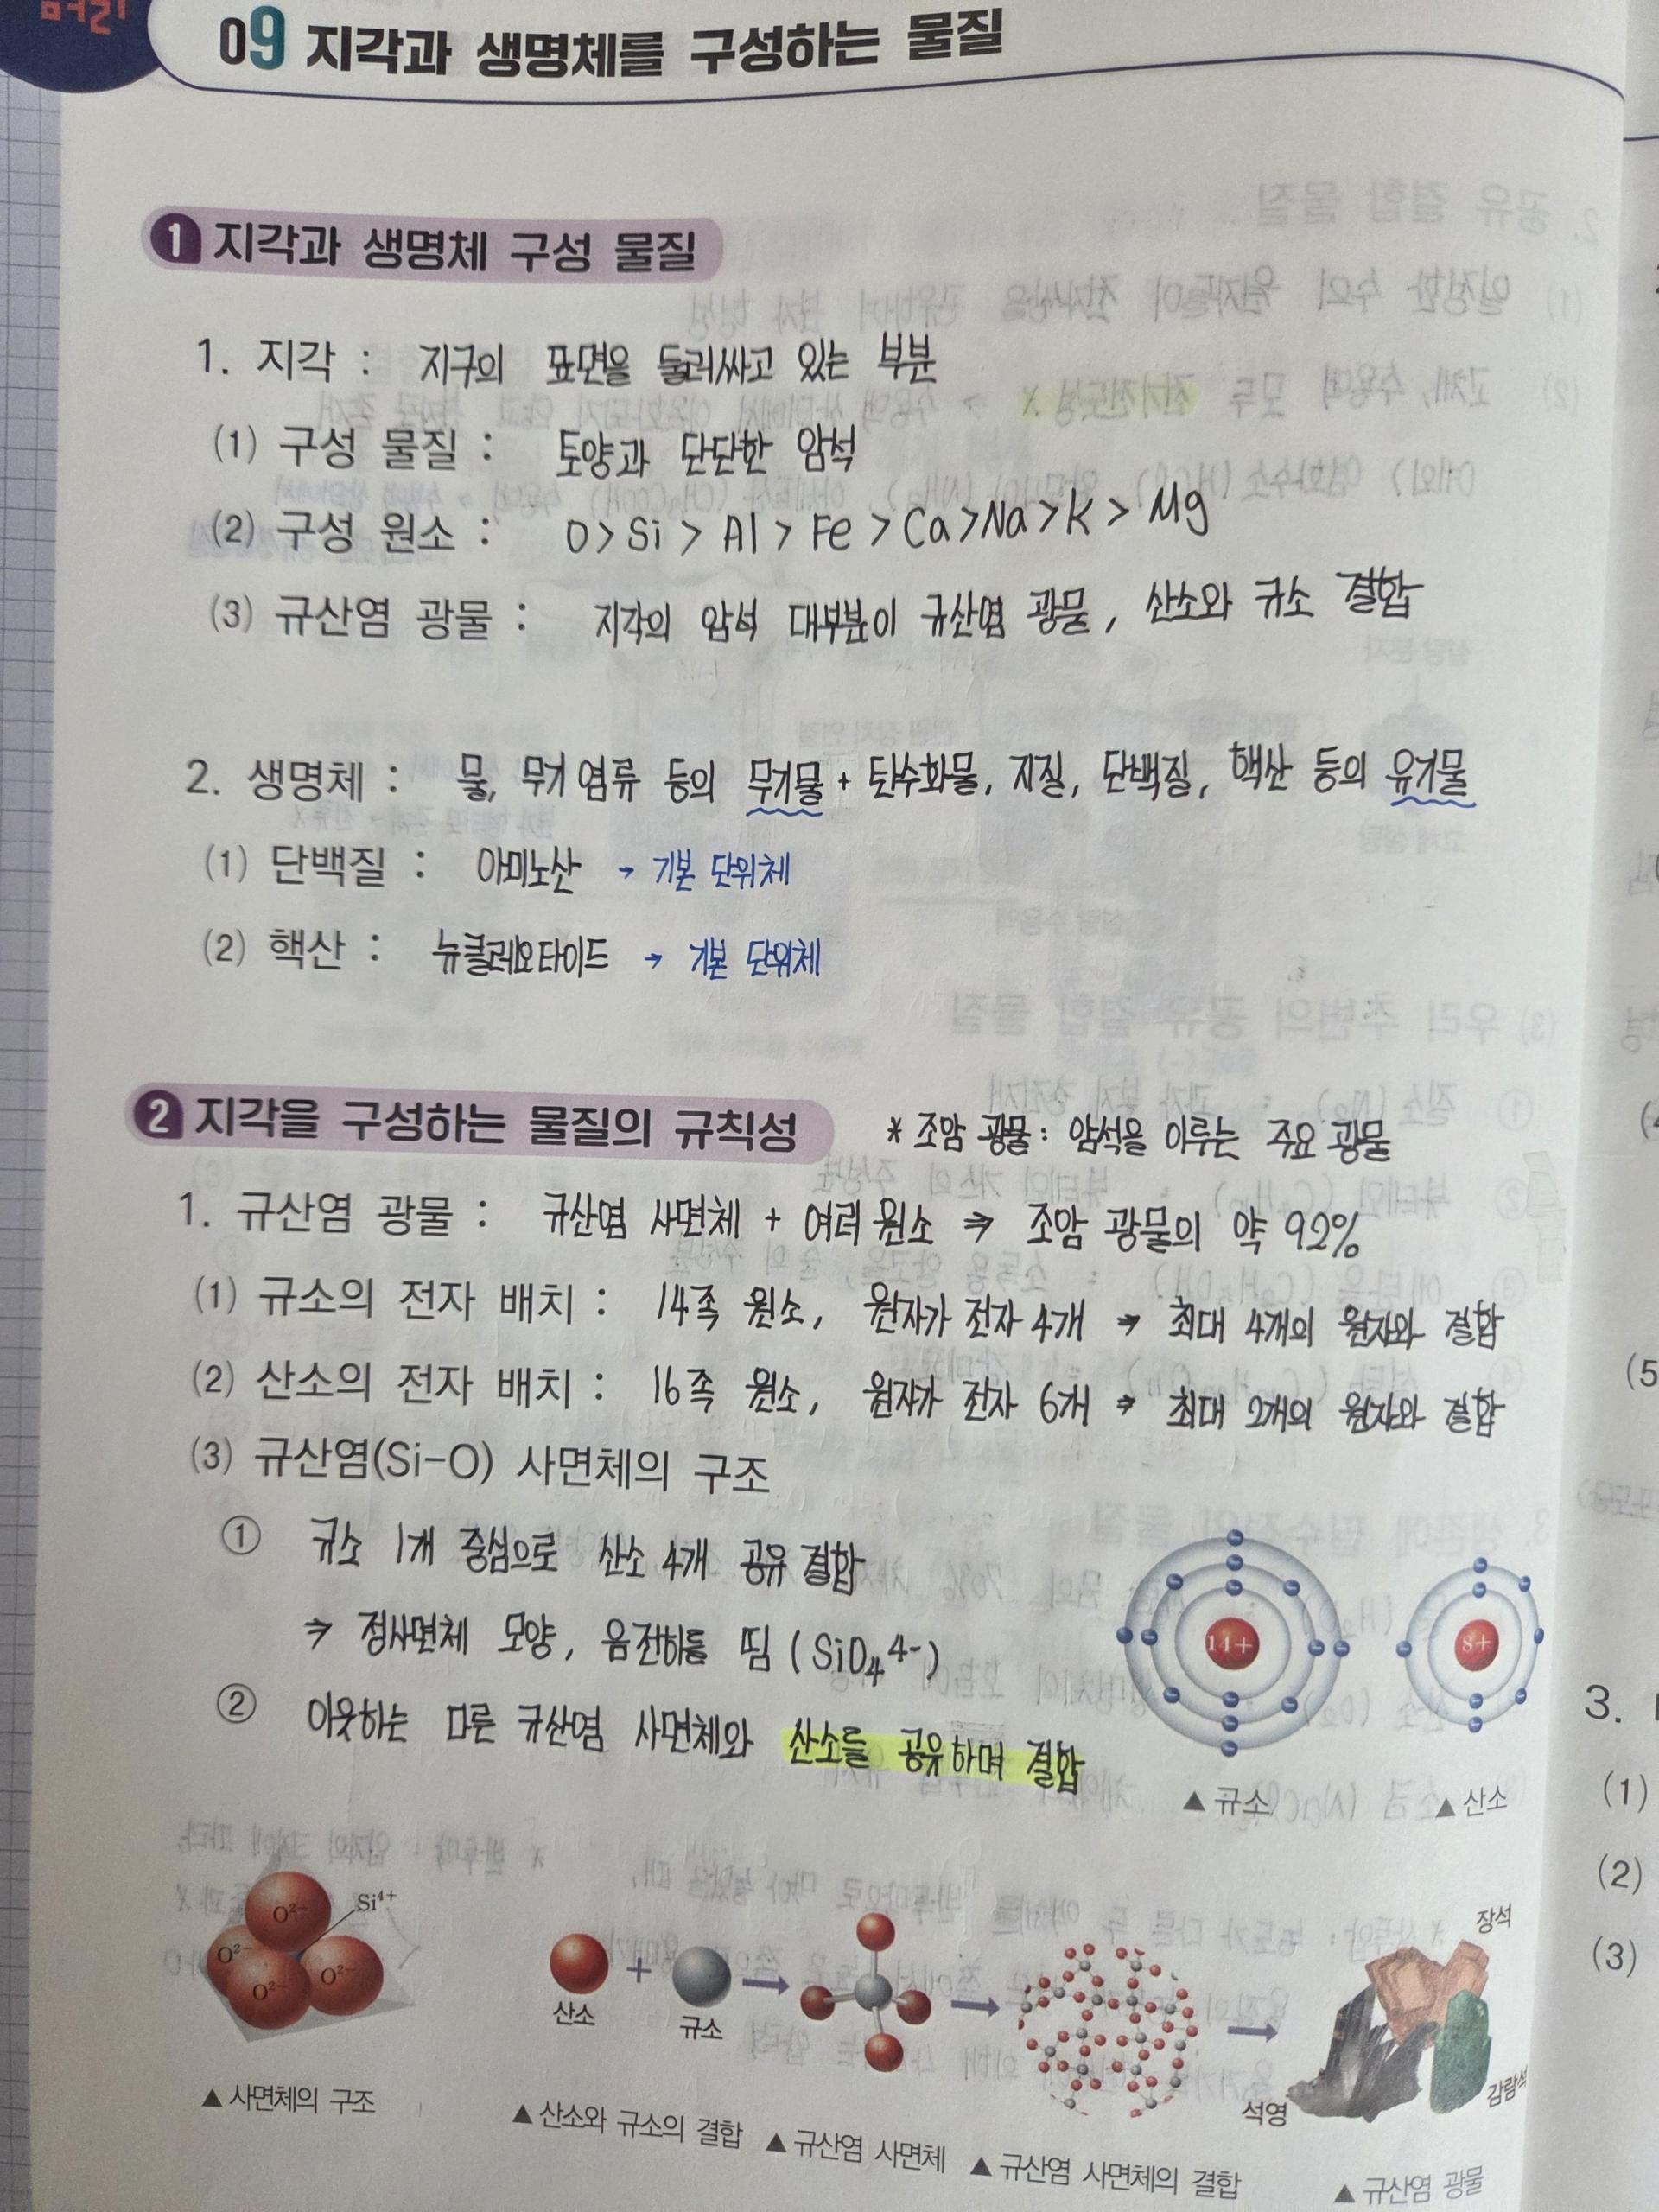 09 지각과 생명체를 구성하는 물질
1 지각과 생명체 구성 물질
1. 지각 : 지구의 표면을 둘러싸고 있는 부분
(1) 구성 물질 : 토양과 단단한 암석
(2) 구성 원소 : O > Si > Al > Fe > Ca > Na > K > Mg
(3) 규산염 광물 : 지각의 암석 대부분이 규산염 광물, 산소와 규소 결합
2. 생명체 : 물, 무기 염류 등의 무기물 + 탄수화물, 지질, 단백질, 핵산 등의 유기물
(1) 단백질 : 아미노산 → 기본 단위체
(2) 핵산 : 뉴클레오타이드 → 기본 단위체
2 지각을 구성하는 물질의 규칙성 * 조암 광물 : 암석을 이루는 주요 광물
1. 규산염 광물 : 규산염 사면체 + 여러 원소 ⇒ 조암 광물의 약 92%
(1) 규소의 전자 배치 : 14족 원소, 원자가 전자 4개 ⇒ 최대 4개의 원자와 결합
(2) 산소의 전자 배치 : 16족 원소, 원자가 전자 6개 ⇒ 최대 2개의 원자와 결합
(3) 규산염(Si-O) 사면체의 구조
① 규소 1개 중심으로 산소 4개 공유 결합
⇒ 정사면체 모양, 음전하를 띰 (SiO₄⁴⁻)
② 이웃하는 다른 규산염 사면체와 산소를 공유하며 결합
14+ 8+
▲ 규소 ▲ 산소
O²⁻ Si⁴⁺
O²⁻ O²⁻ O²⁻
산소 + 규소
장석
석영 감람석
▲ 사면체의 구조 ▲ 산소와 규소의 결합 ▲ 규산염 사면체 ▲ 규산염 사면체의 결합 ▲ 규산염 광물
(5
3.
(1)
(2)
(3)